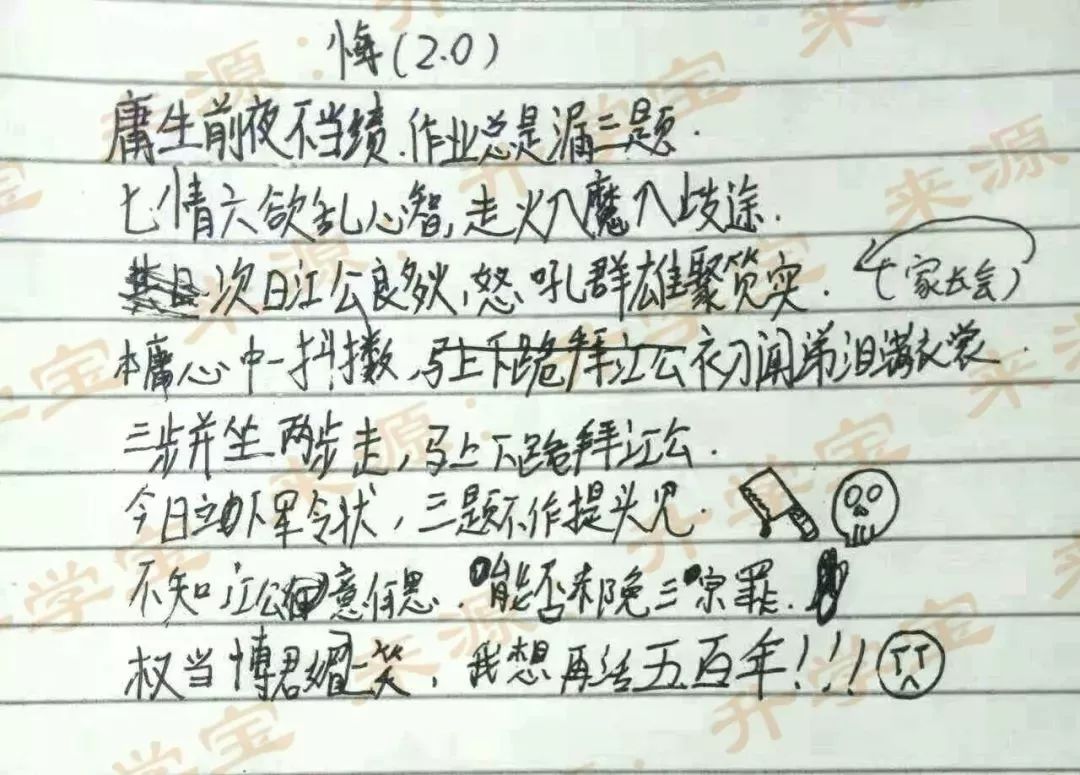 悔(2.0)
庸生前夜不当绩.作业总是漏三题.
七情六欲乱心智,走火入魔入歧途.
次日江公良多,怒吼群雄聚笕实.(家长会)
本庸心中一抖擞,马上下跪拜江公衣习闻涕泪满衣裳.
三步并坐两步走,马上下跪拜江公.
今日立下军令状,三题不作提头见.
不知江公意何思.能否赦晚三宗罪.
权当博君一笑,我想再活五百年!!!
来源:升学宝